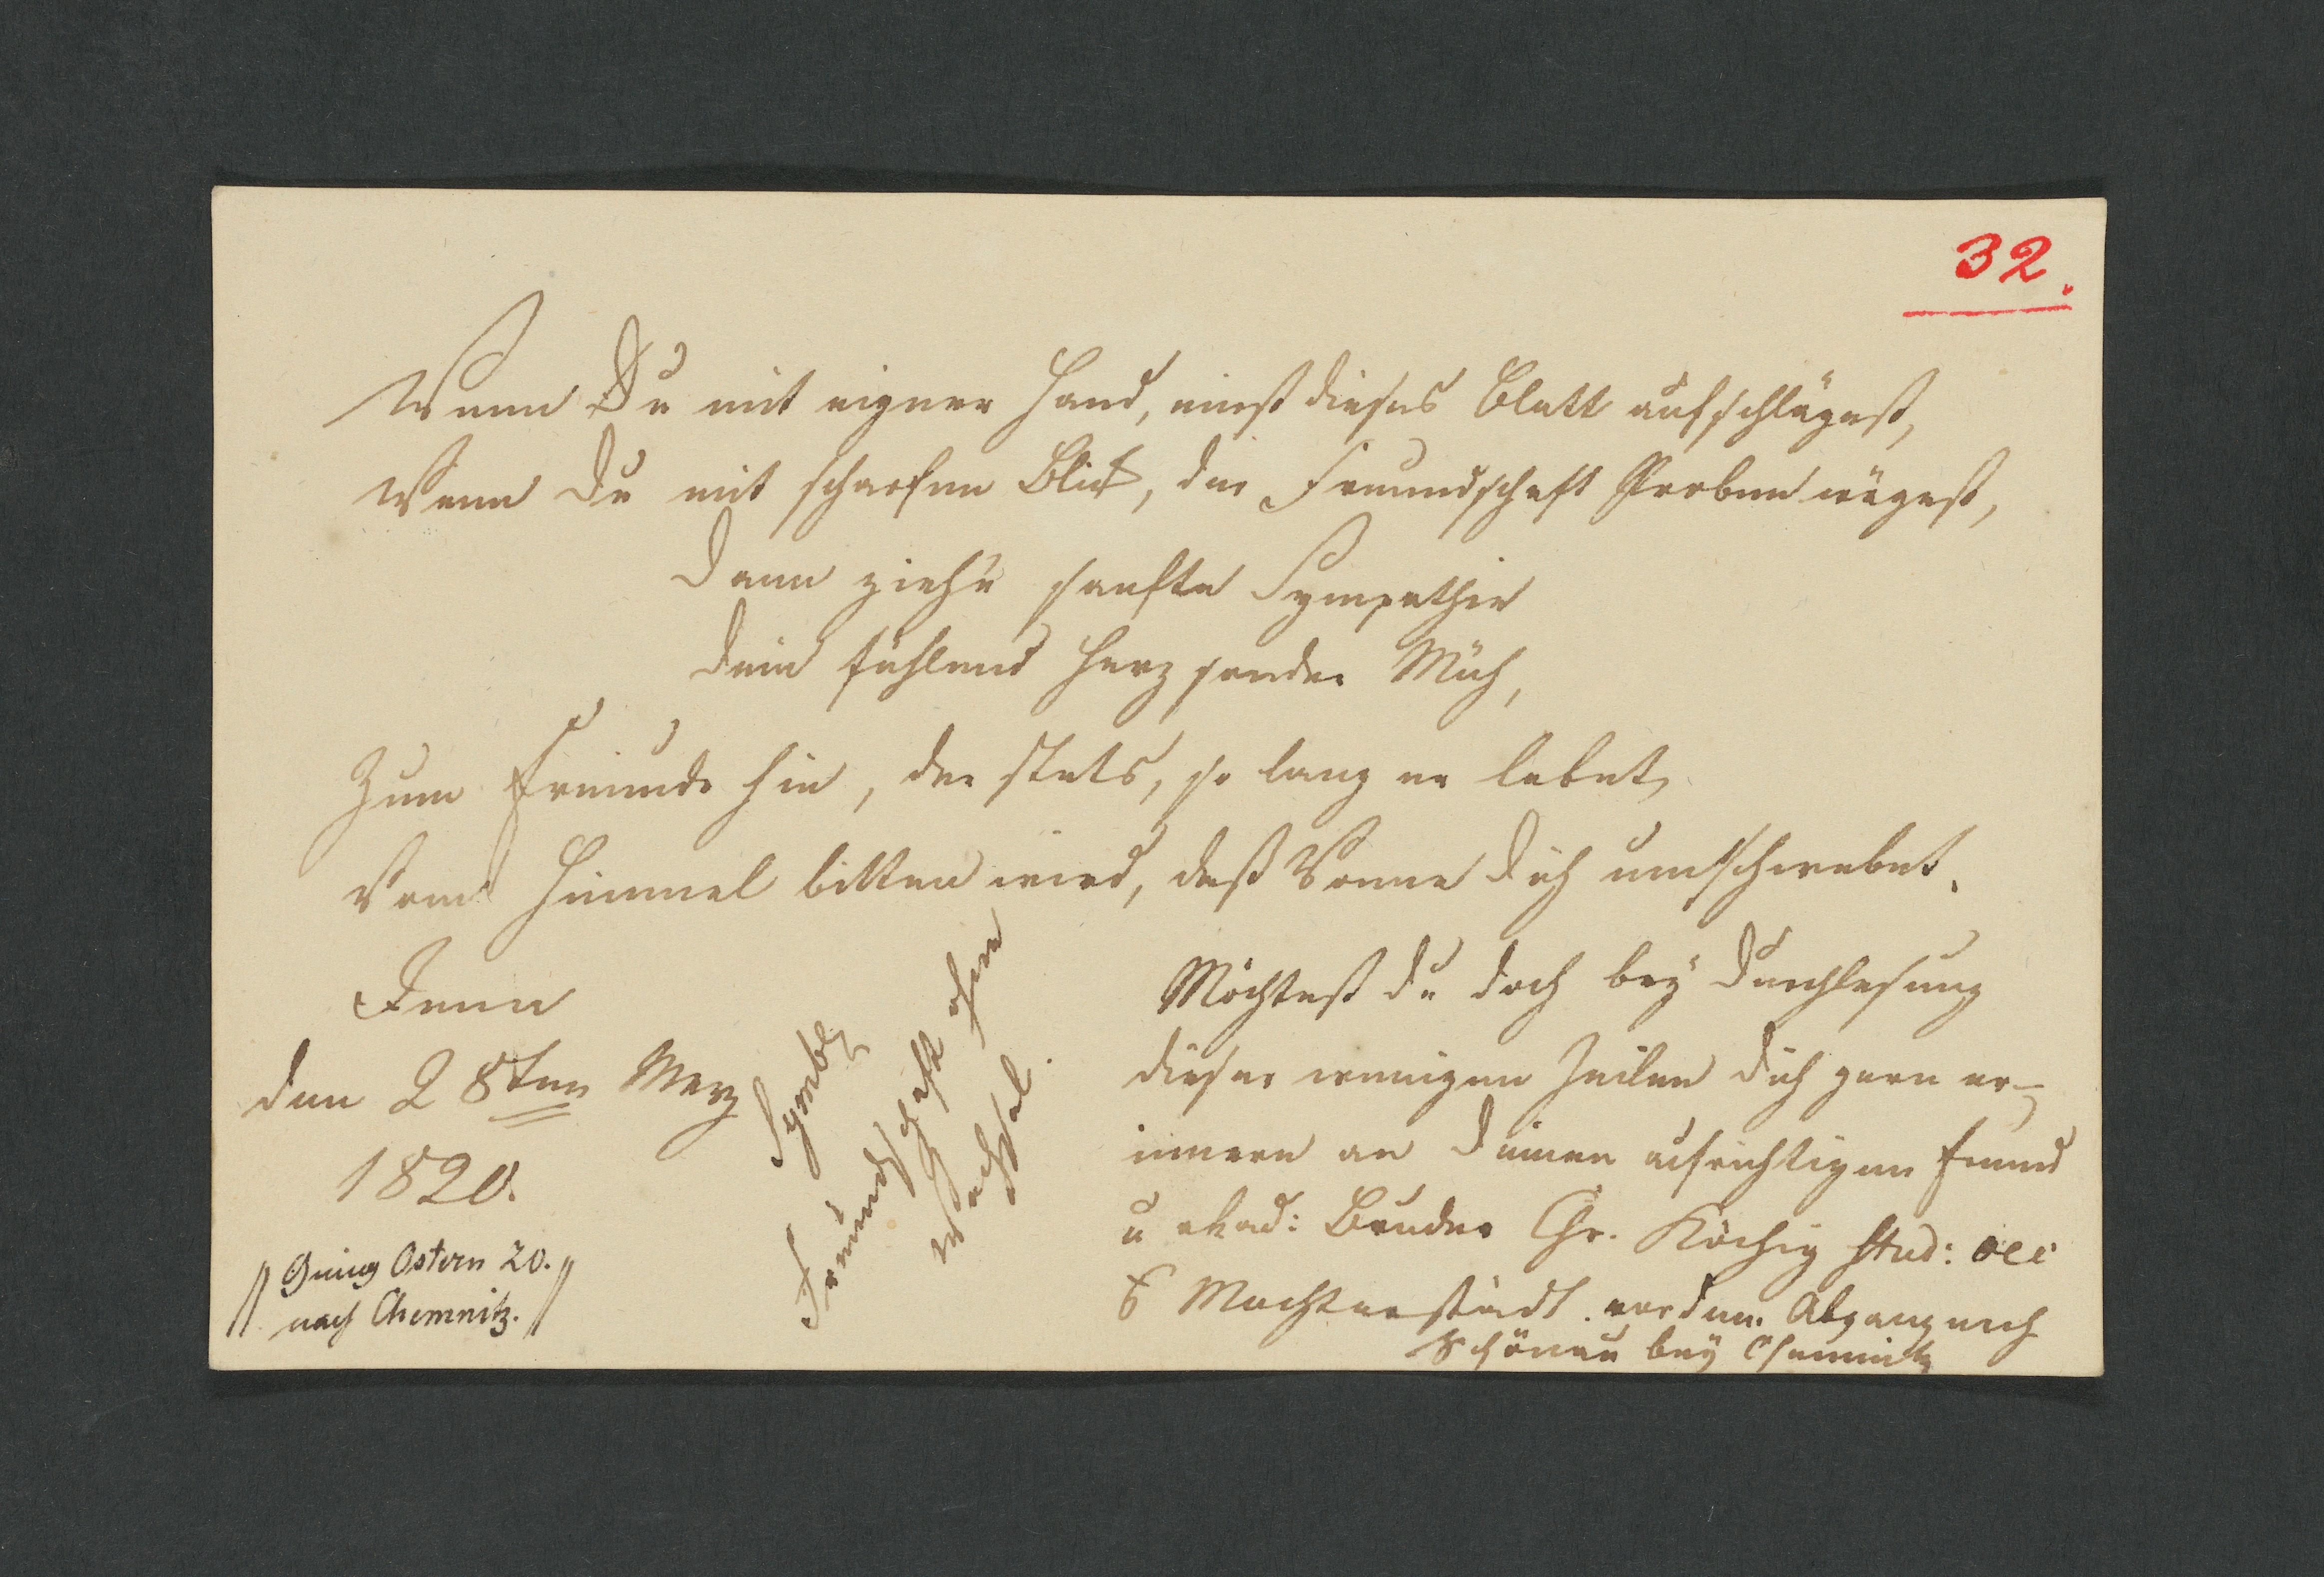 32.
Wenn Du mit eigner Hand, einst dieses Blatt aufschlägest,
Wenn Du mit scharfen Blick, der Freundschaft Proben wägest,
Dann ziehe sanfte Sympathie
Dein fühlend Herz sonder Müh,
Zum Freunde hin, der stets, so lang er lebet,
Vom Himmel bitten wird, daß Wonne Dich umschwebet.
Jena
den 28sten Merz
1820.
Symb:
Freundschaft ohne
Wechsel.
Möchtest du doch bey Durchlesung
dieser wenigen Zeilen Dich gern er-
innern an Deinen aufrichtigen Freund
u akad: Bruder Chr. Köchig Stud:
Machterstädt. vor dem Abgang nach
Schönau bey Chemnitz
// Ging Ostern 20. //
// nach Chemnitz. //